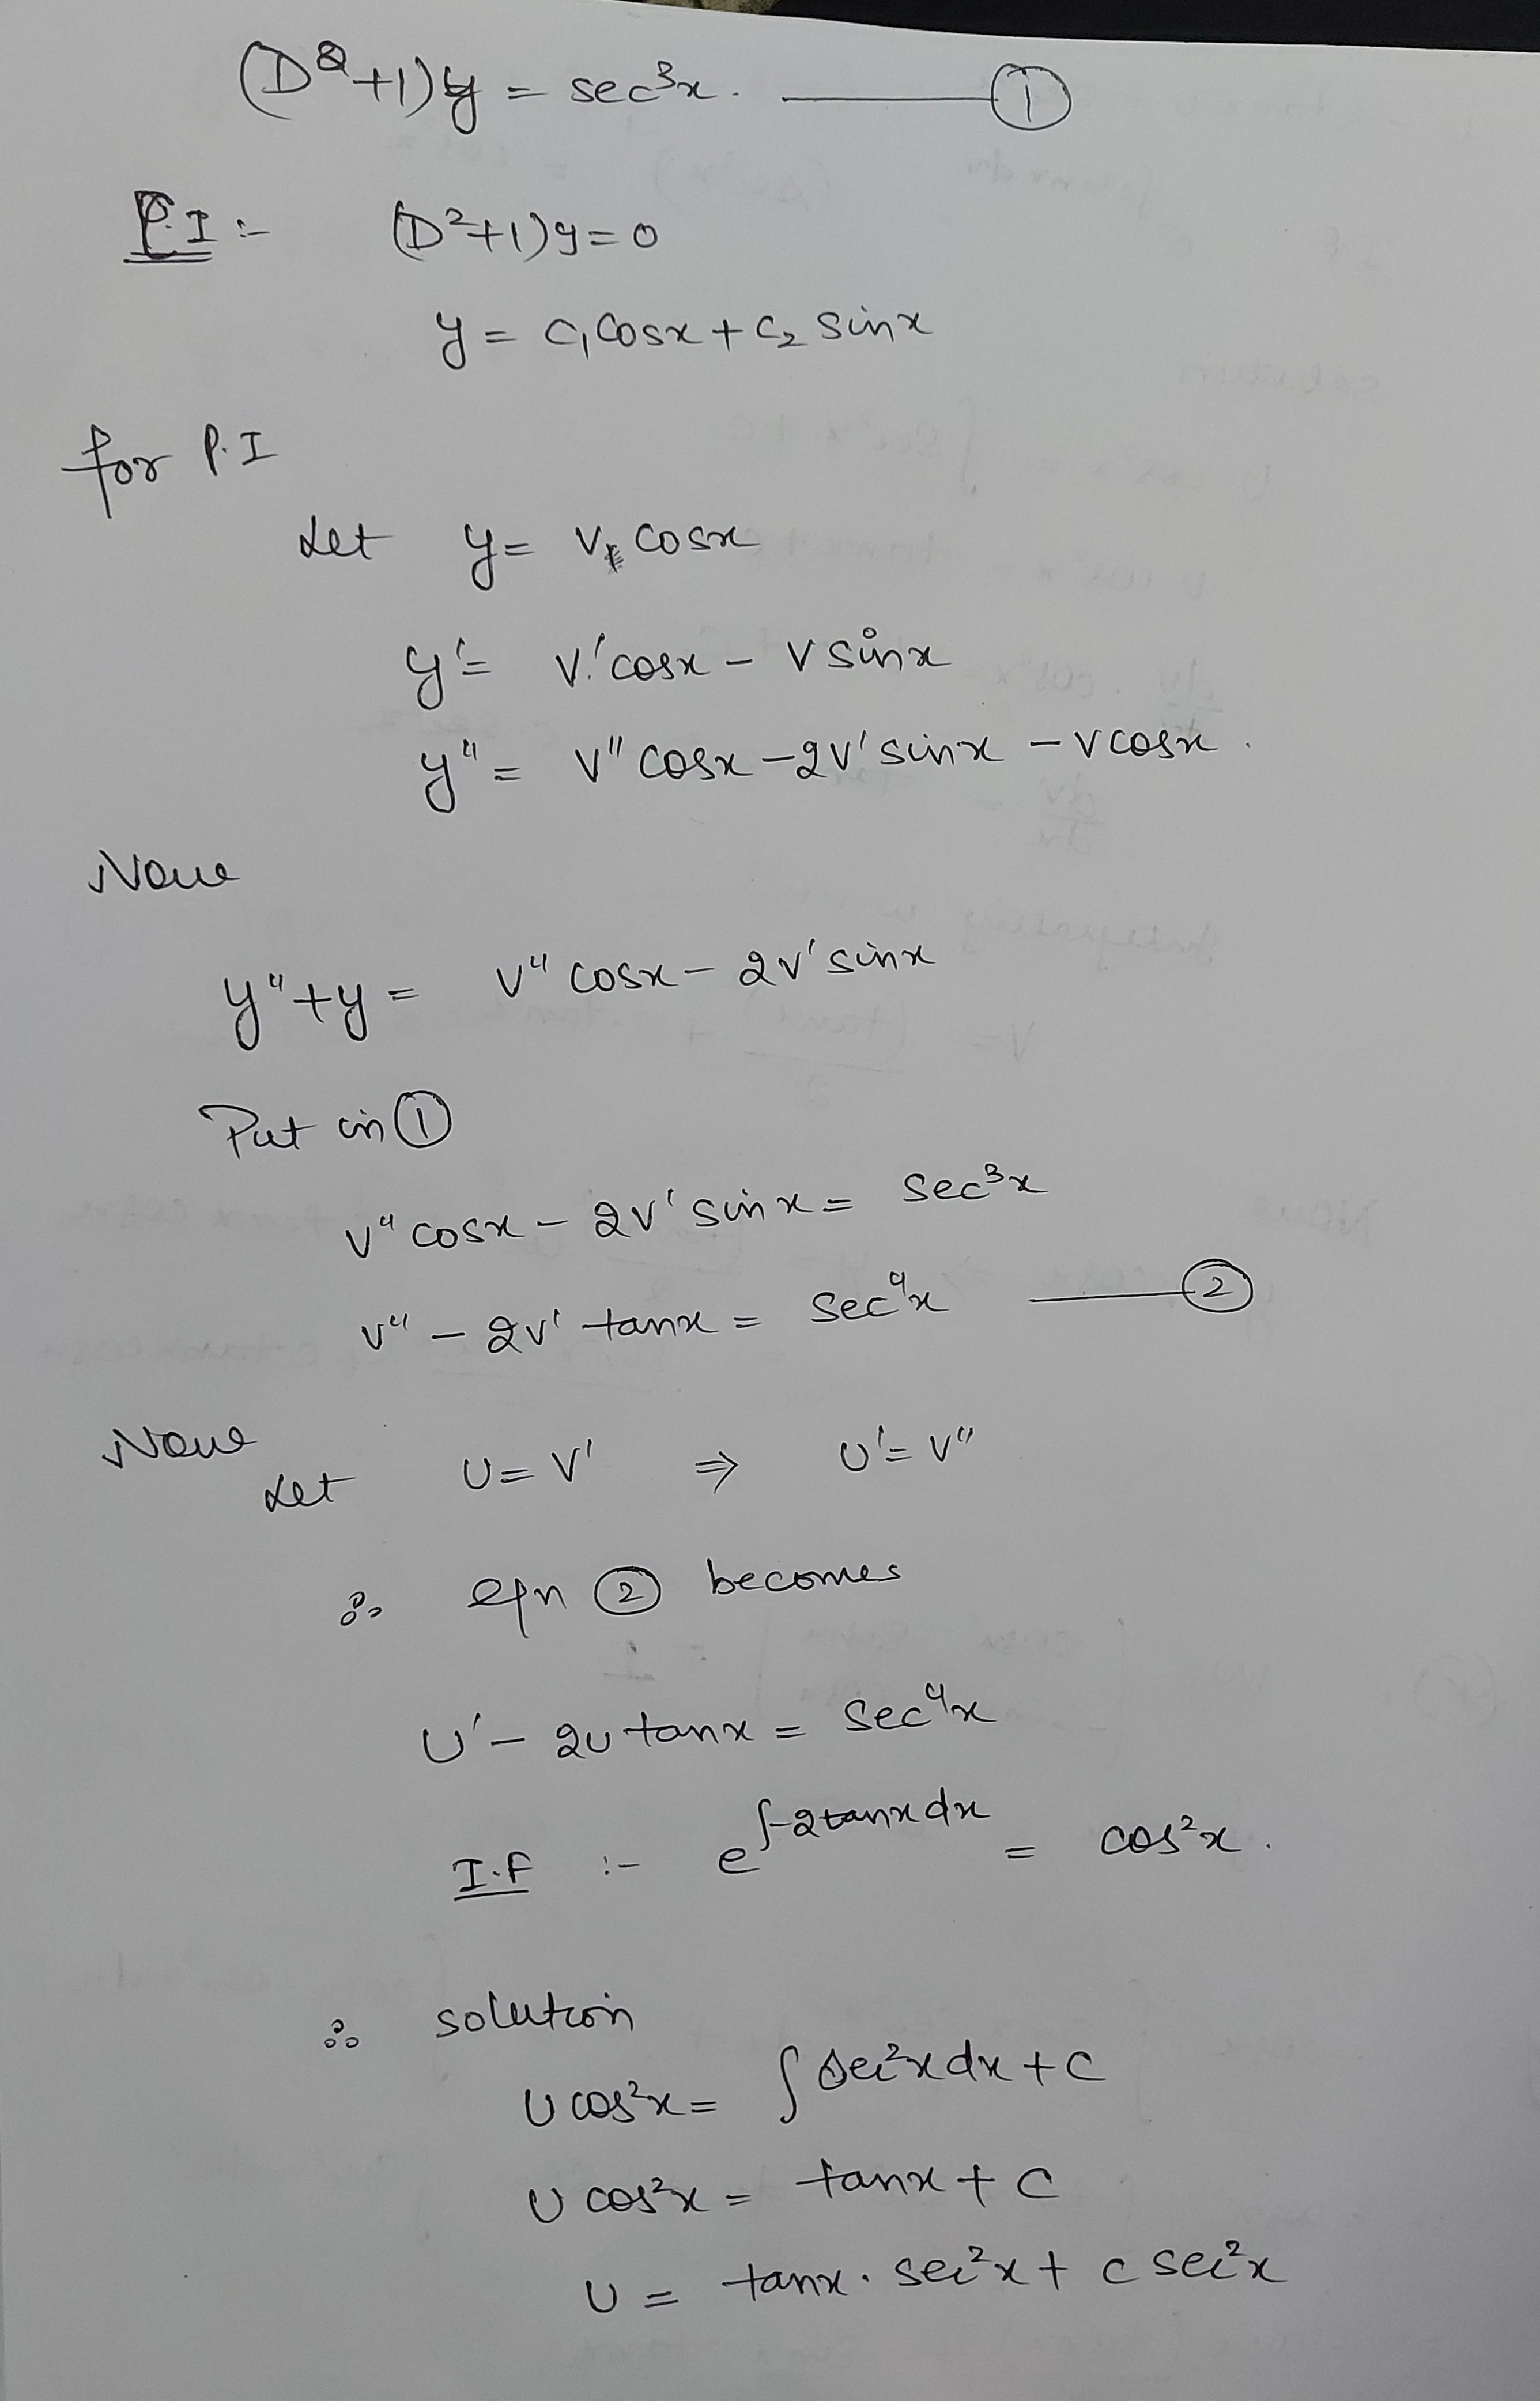 (D²+1)y = sec³x. ——— ①
P.I :- (D²+1)y=0
y = C₁ Cosx + C₂ Sinx
for P.I
Let y = V Cosx
y' = V'cosx - V sinx
y'' = V'' cosx - 2V' sinx - V cosx.
Now
y''+y = V'' cosx - 2V' sinx
Put in ①
V'' cosx - 2V' sinx = Sec³x
V'' - 2V' tanx = Sec⁴x ——— ②
Now
Let U = V' ⇒ U' = V''
∴ eqn ② becomes
U' - 2U tanx = Sec⁴x
I.F :- e^∫-2tanxdx = cos²x.
∴ solution
U cos²x = ∫Sec²xdx + C
U cos²x = tanx + C
U = tanx. Sec²x + C Sec²x